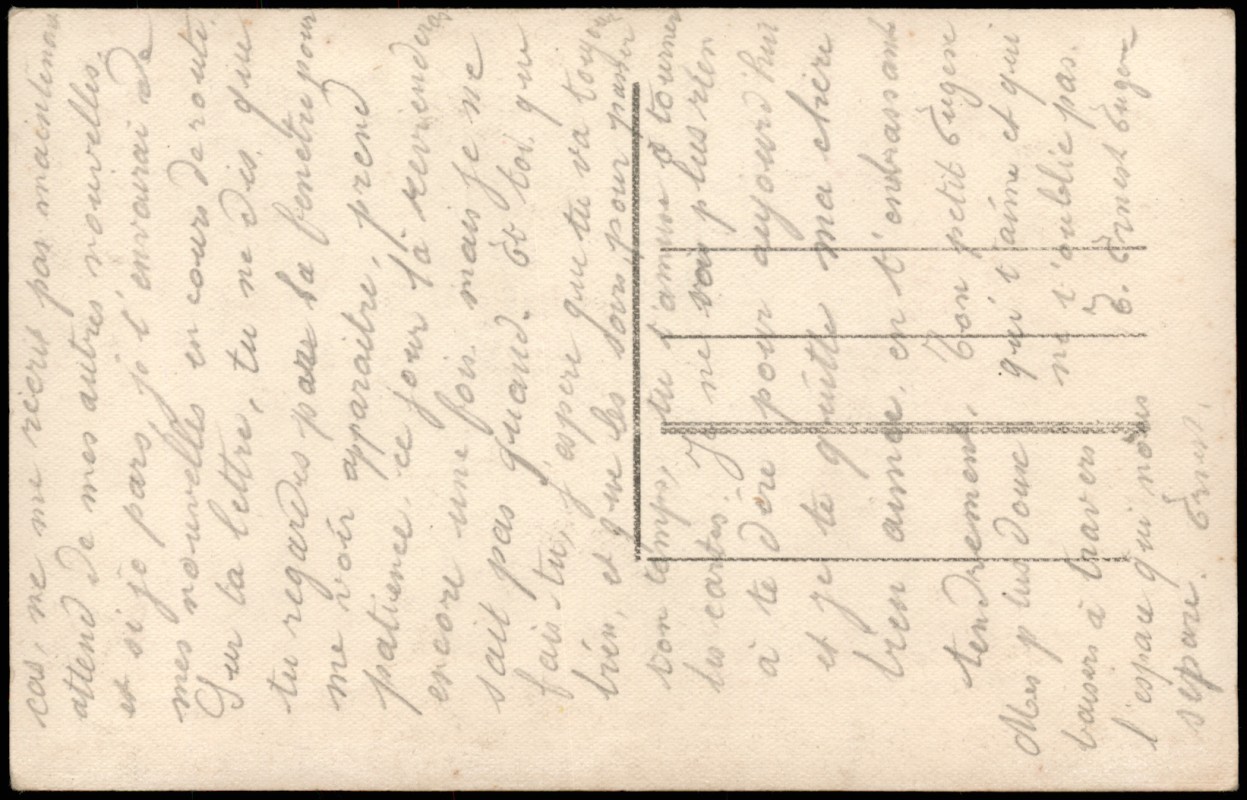 cas, ne me récrit pas maintenant
attend de mes autres nouvelles.
et si je pars, je t'envairai de
mes nouvelles en cours de route.
Sur ta lettre, tu ne dis que
tu regardes par la fenetre pour
me voir apparaitre, prend
patience ce jour là reviendra
encore une fois mais je ne
sait pas quand. Et toi que
fais-tu, j'espère que tu va toujours
bien, et que les soirs, pour passer
ton temps, tu t'amuse à tourner
les cartes. Je ne vois plus rien
à te dire pour aujourd'hui
et je te quitte ma chère
bien aimée, en t'embrassant
tendrement, Ton petit Eugene
qui t'aime et qui
ne t'oublie pas.
E. Ernest Eugene
Mes plus doux
baisers à travers
l'espace qui nous
sépare. Ernest.